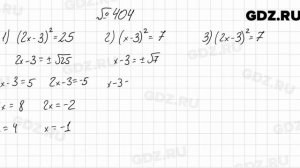 GDZ.RU
№ 404
1) (2x-3)² = 25 2) (x-3)² = 7 3) (2x-3)² = 7
2x-3 = ±√25 x-3 = ±√7
x-3 = 5 2x-3 = -5 x-3 =
x = 8 2x = -2
= 4 x = -1
GDZ.RU